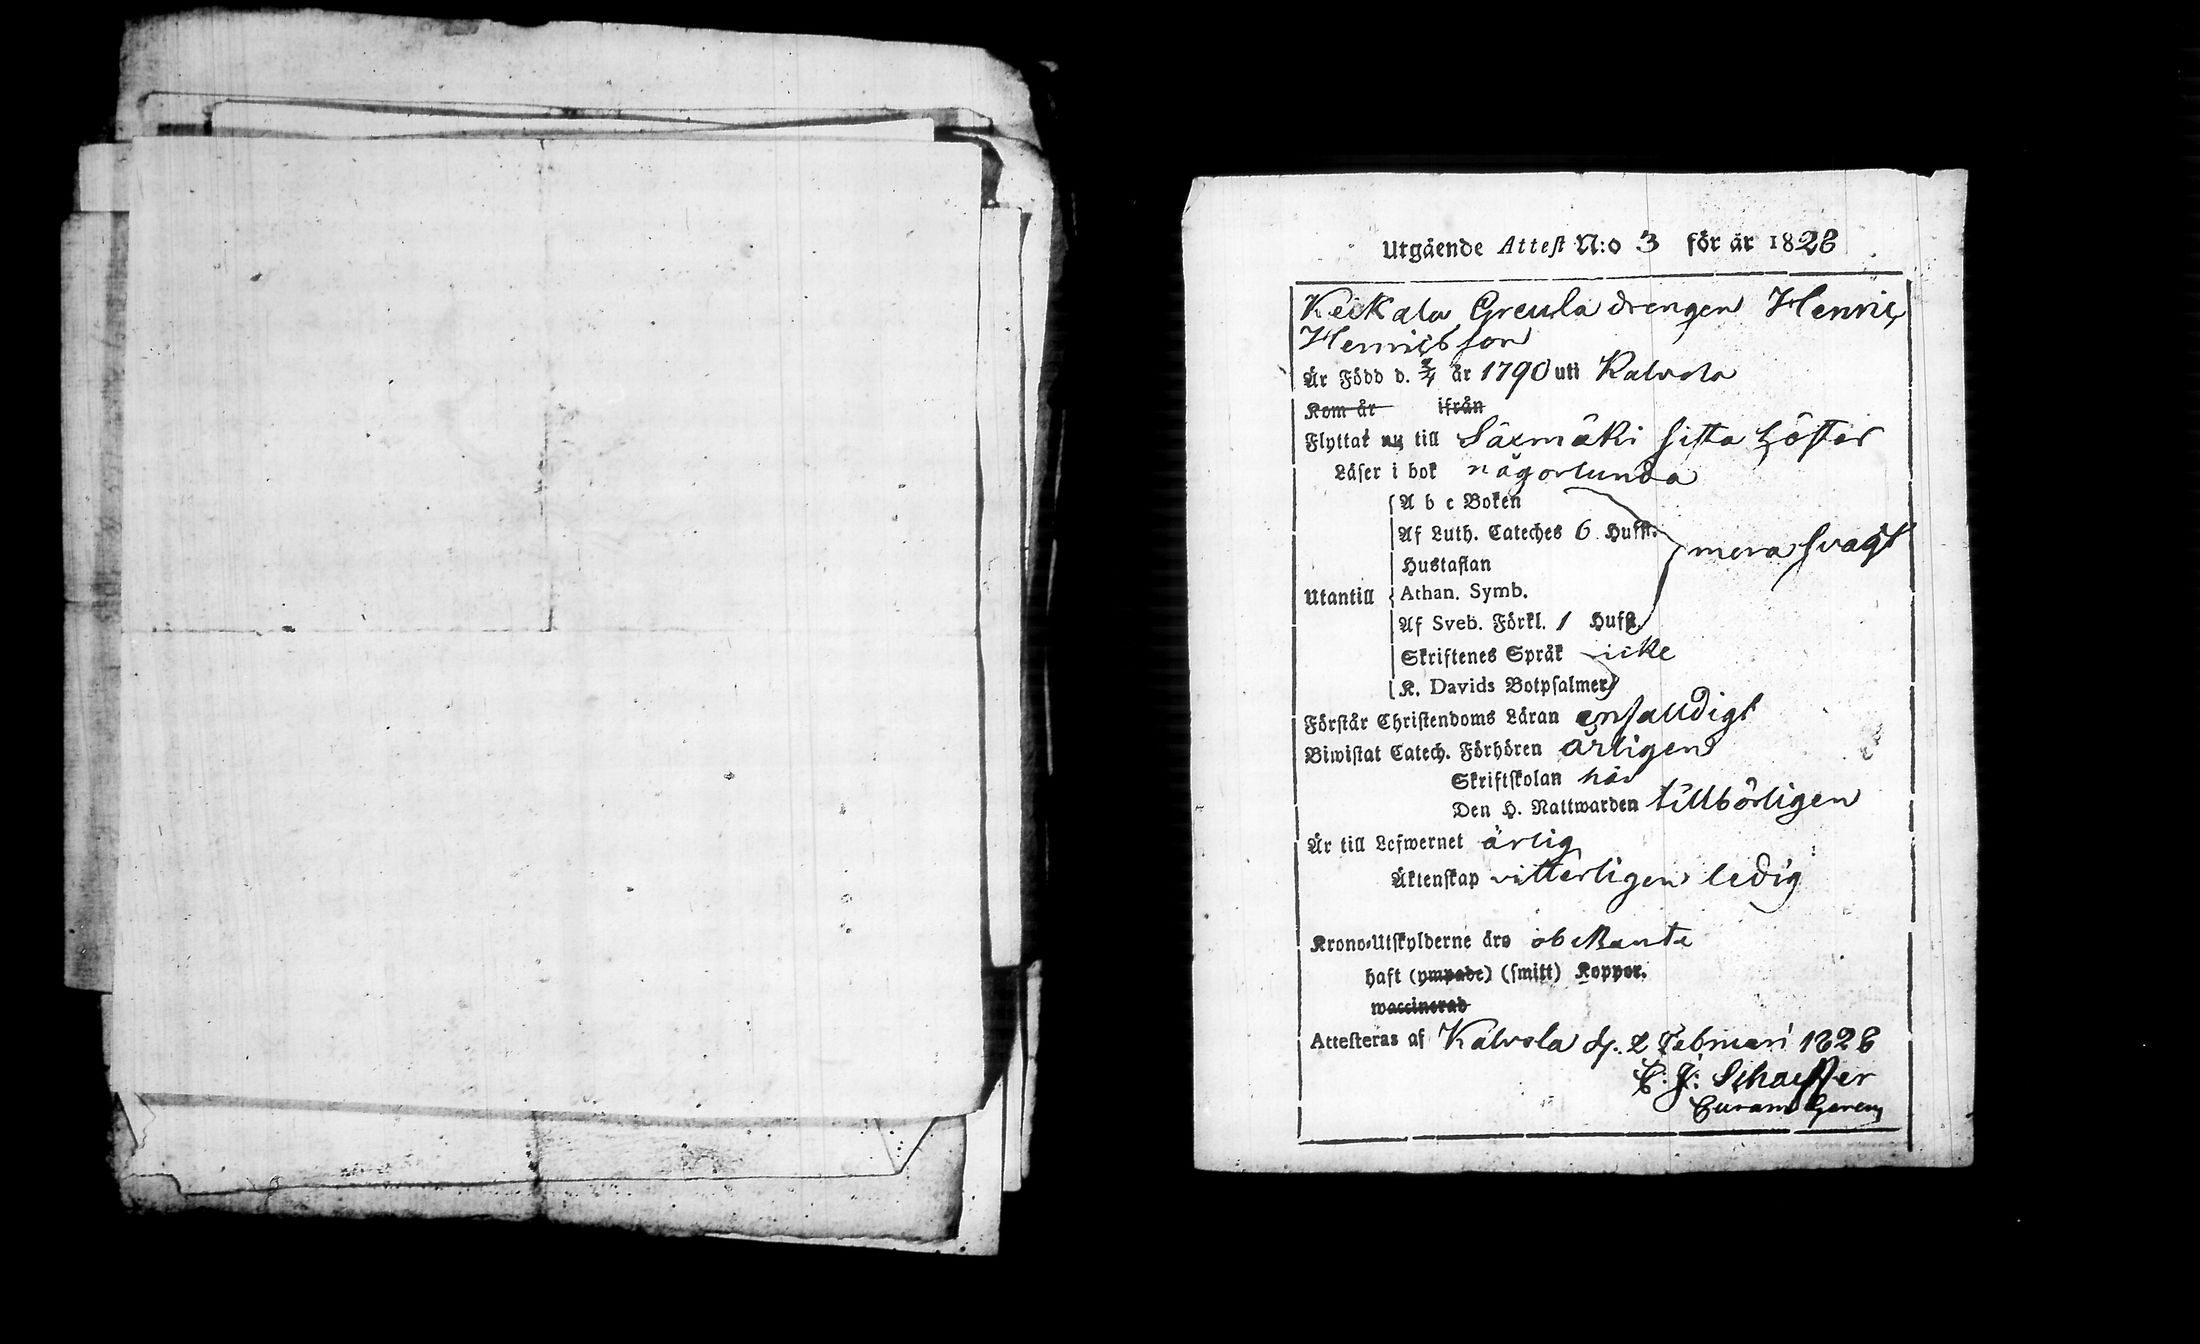 Utgående Attest N:o 3 för år 1828
Keikala Greula drengen Henric
Henricsson
Är Född d. 3/4 år 1790 uti Kalvola
Kom år ifrån
Flyttat nu till Säxmäki sista höstes
Läser i bok någorlunda
A b c Boken
Af Luth. Cateches 6 Hufst.
mera svagt
Hustaflan
Utantill Athan. Symb.
Af Sveb. Förkl. 1 Hufst.
Skriftenes Språk icke
K. Davids Botpsalmer
Förstår Christendoms Läran enfalldigt
Biwistat Catech. Förhören årligen
Skriftskolan här
Den H. Nattwarden tillbörligen
Är till Lefwernet ärlig
Äktenskap vitterligen ledig
Krono-Utskylderne äro obekante
haft (ympade) (smitt) Koppor.
waccinerad
Attesteras af Kalvola d. 2 Februari 1828
C: J: Schaeffer
Curam Gerens